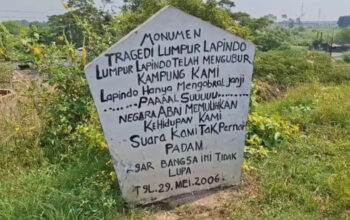 MONUMEN
TRAGEDI LUMPUR LAPINDO
LUMPUR LAPINDO TELAH MENGUBUR
KAMPUNG KAMI
LAPINDO HANYA MENGOBRAL JANJI
........PAAAAL SUUUUU........
NEGARA ABAI MEMULIHKAN
KEHIDUPAN KAMI
SUARA KAMI TAK PERNAH
PADAM.
AGAR BANGSA INI TIDAK
LUPA.
TGL.29.MEI.2006.